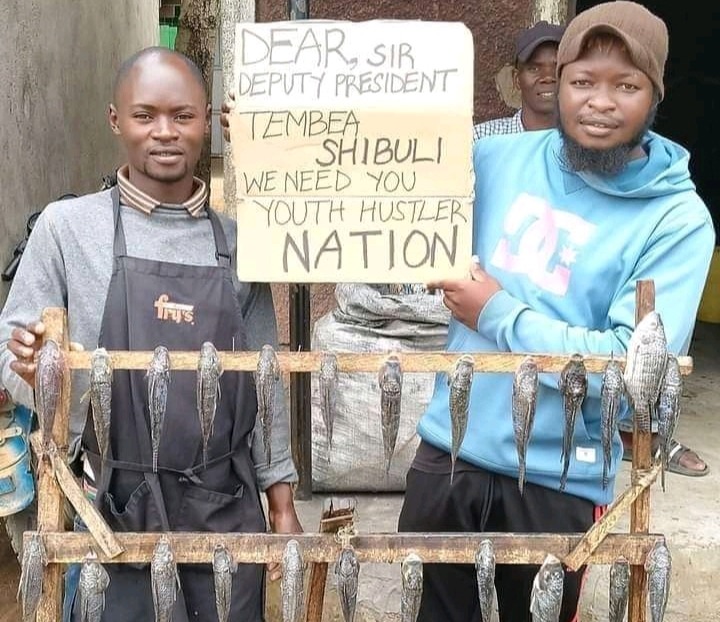 DEAR, SIR
DEPUTY PRESIDENT
TEMBEA
SHIBULI
WE NEED YOU
YOUTH HUSTLER
NATION
fry's
DC